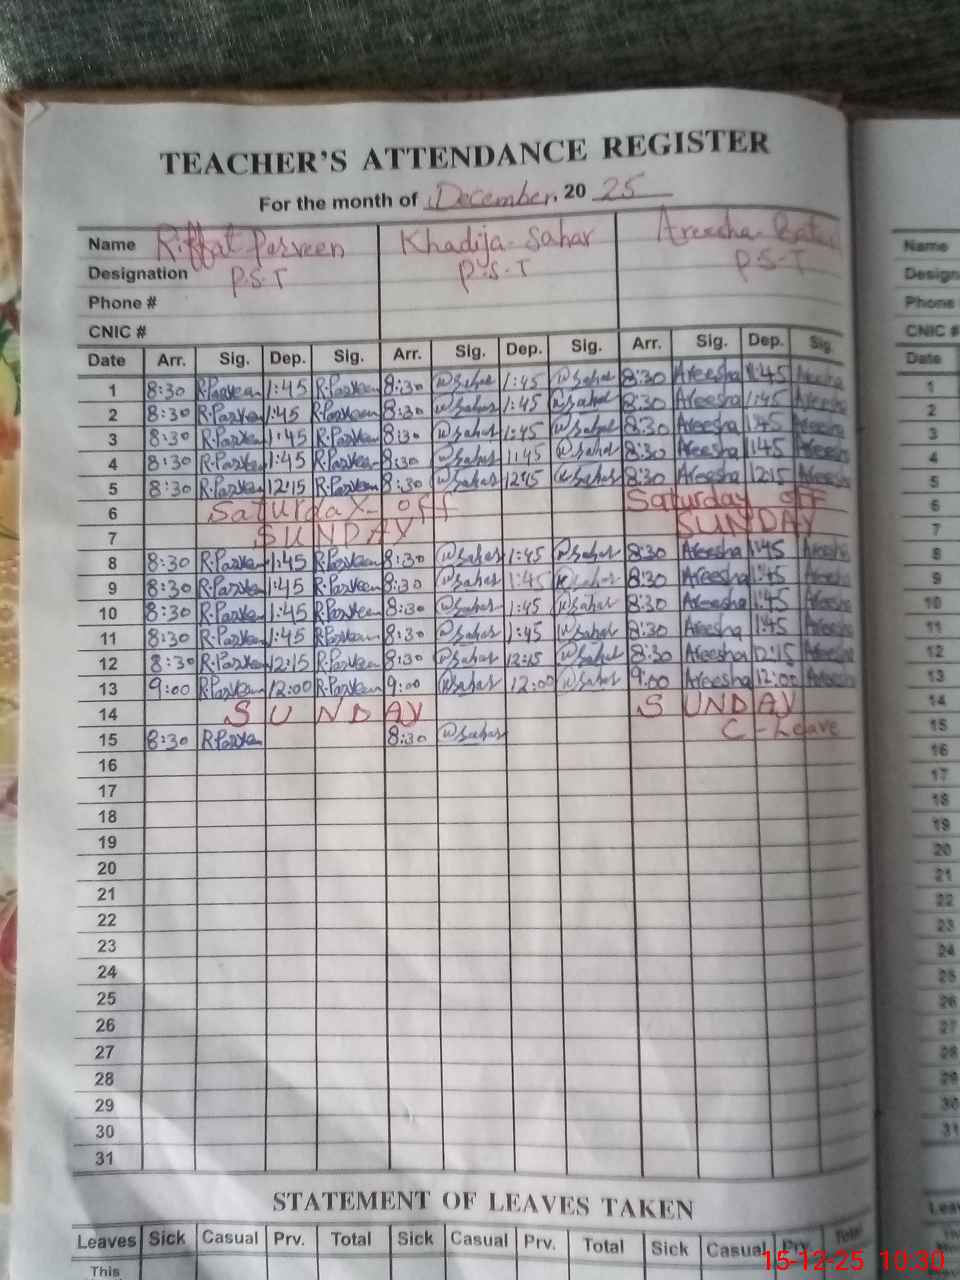 TEACHER'S ATTENDANCE REGISTER
For the month of December. 20 25
Name Riffat Parveen Khadija-Sahar Areesha-
Designation P.S.T P.S.T P.S.T
Phone #
CNIC #
Date Arr. Sig. Dep. Sig. Arr. Sig. Dep. Sig. Arr. Sig. Dep. Sig.
1 8:30 R.Parveen 1:45 R.Parveen 8:30 Sahar 1:45 Sahar 8:30 Areesha 1:45 Areesha
2 8:30 R.Parveen 1:45 R.Parveen 8:30 Sahar 1:45 Sahar 8:30 Areesha 1:45 Areesha
3 8:30 R.Parveen 1:45 R.Parveen 8:30 Sahar 1:45 Sahar 8:30 Areesha 1:45 Areesha
4 8:30 R.Parveen 1:45 R.Parveen 8:30 Sahar 1:45 Sahar 8:30 Areesha 1:45 Areesha
5 8:30 R.Parveen 12:15 R.Parveen 8:30 Sahar 12:15 Sahar 8:30 Areesha 12:15 Areesha
6 Saturday-off Saturday off
7 SUNDAY SUNDAY
8 8:30 R.Parveen 1:45 R.Parveen 8:30 Sahar 1:45 Sahar 8:30 Areesha 1:45 Areesha
9 8:30 R.Parveen 1:45 R.Parveen 8:30 Sahar 1:45 Sahar 8:30 Areesha 1:45 Areesha
10 8:30 R.Parveen 1:45 R.Parveen 8:30 Sahar 1:45 Sahar 8:30 Areesha 1:45 Areesha
11 8:30 R.Parveen 1:45 R.Parveen 8:30 Sahar 1:45 Sahar 8:30 Areesha 1:45 Areesha
12 8:30 R.Parveen 12:15 R.Parveen 8:30 Sahar 12:15 Sahar 8:30 Areesha 12:15 Areesha
13 9:00 R.Parveen 12:00 R.Parveen 9:00 Sahar 12:00 Sahar 9:00 Areesha 12:00 Areesha
14 SUNDAY SUNDAY
15 8:30 R.Parveen 8:30 Sahar C-Leave
16
17
18
19
20
21
22
23
24
25
26
27
28
29
30
31
STATEMENT OF LEAVES TAKEN
Leaves Sick Casual Prv. Total Sick Casual Prv. Total Sick Casual Prv. Total
This
Name
Phone #
CNIC #
Date
1
2
3
4
5
6
7
8
9
10
11
12
13
14
15
16
17
18
19
20
21
22
23
24
25
26
27
28
29
30
31
15-12-25 10:30